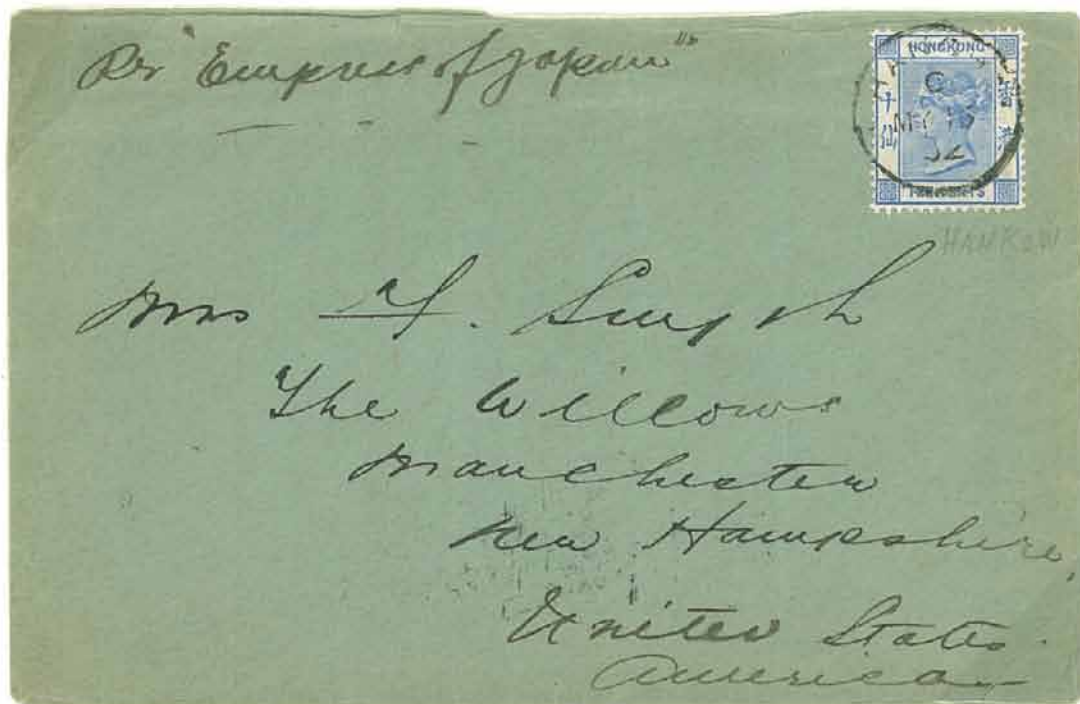 Per "Empress of Japan"
HONGKONG
香港
C
MY
92
TEN CENTS
HANKOW
Mrs F. Smyth
The Willows
Manchester
New Hampshire,
United States
America